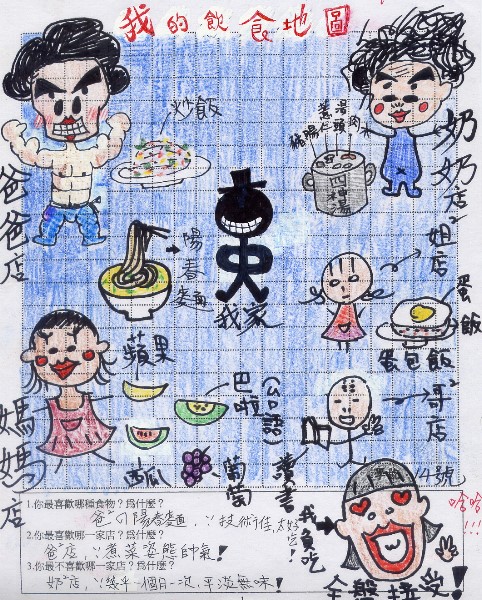 我的飲食地圖
炒飯
爸爸店
豬腸
薏仁
湯頭
肉
四神湯
奶奶店
陽春麵
我家
姐店
蛋飯
蛋包飯
蘋果
巴啦
(台語)
西瓜
葡萄
媽媽店
哥²店
讀書
14號
1.你最喜歡哪種食物?為什麼?
爸爸的陽春麵,∵技術佳太好吃!
2.你最喜歡哪一家店?為什麼?
爸²店,∵煮菜姿態帥氣!
3.你最不喜歡哪一家店?為什麼?
奶²店,∵幾乎一個月一次,平淡無味!
我貪吃
哈哈
全盤接受!